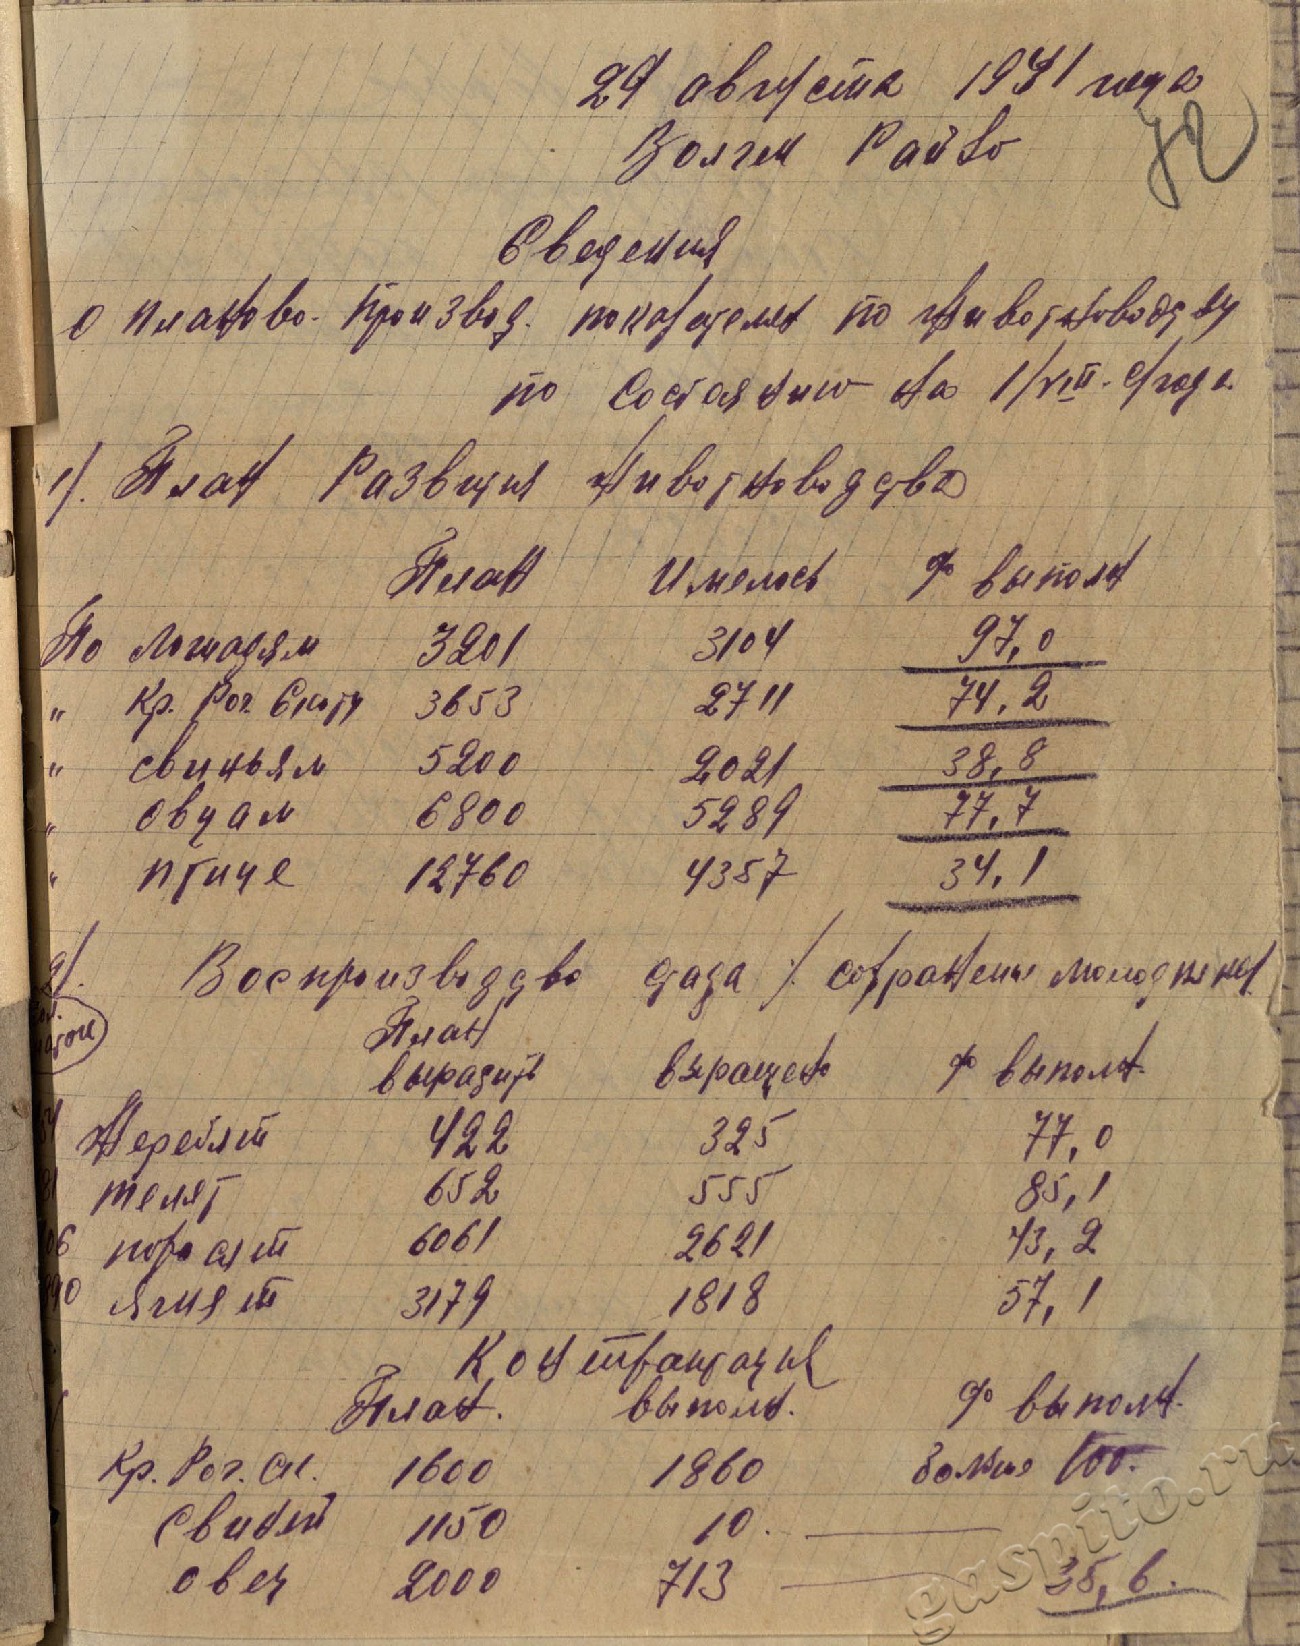 29 августа 1941 года
72
Волчен Райзо
Сведения
о планово. производ. показателях по животноводству
по состоянию на 1/VIII. с/года.
1/. План Развития животноводства
План Имелось % выполн
По лошадям 3201 3104 97,0
" Кр. Рог. Скоту 3653 2711 74,2
" свиньям 5200 2021 38,8
" овцам 6800 5289 77,7
" птице 12760 4357 34,1
2/. Воспроизводство стада /. сохранение молодняка/.
План
вырастить выращено % выполн.
Жеребят 422 325 77,0
телят 652 555 85,1
поросят 6061 2621 43,2
ягнят 3179 1818 57,1
Контрактация
План. выполн. % выполн.
Кр. Рог. ск. 1600 1860 более 100.
Свиней 1150 10. —
овец 2000 713 — 35,6.
gaspito.ru